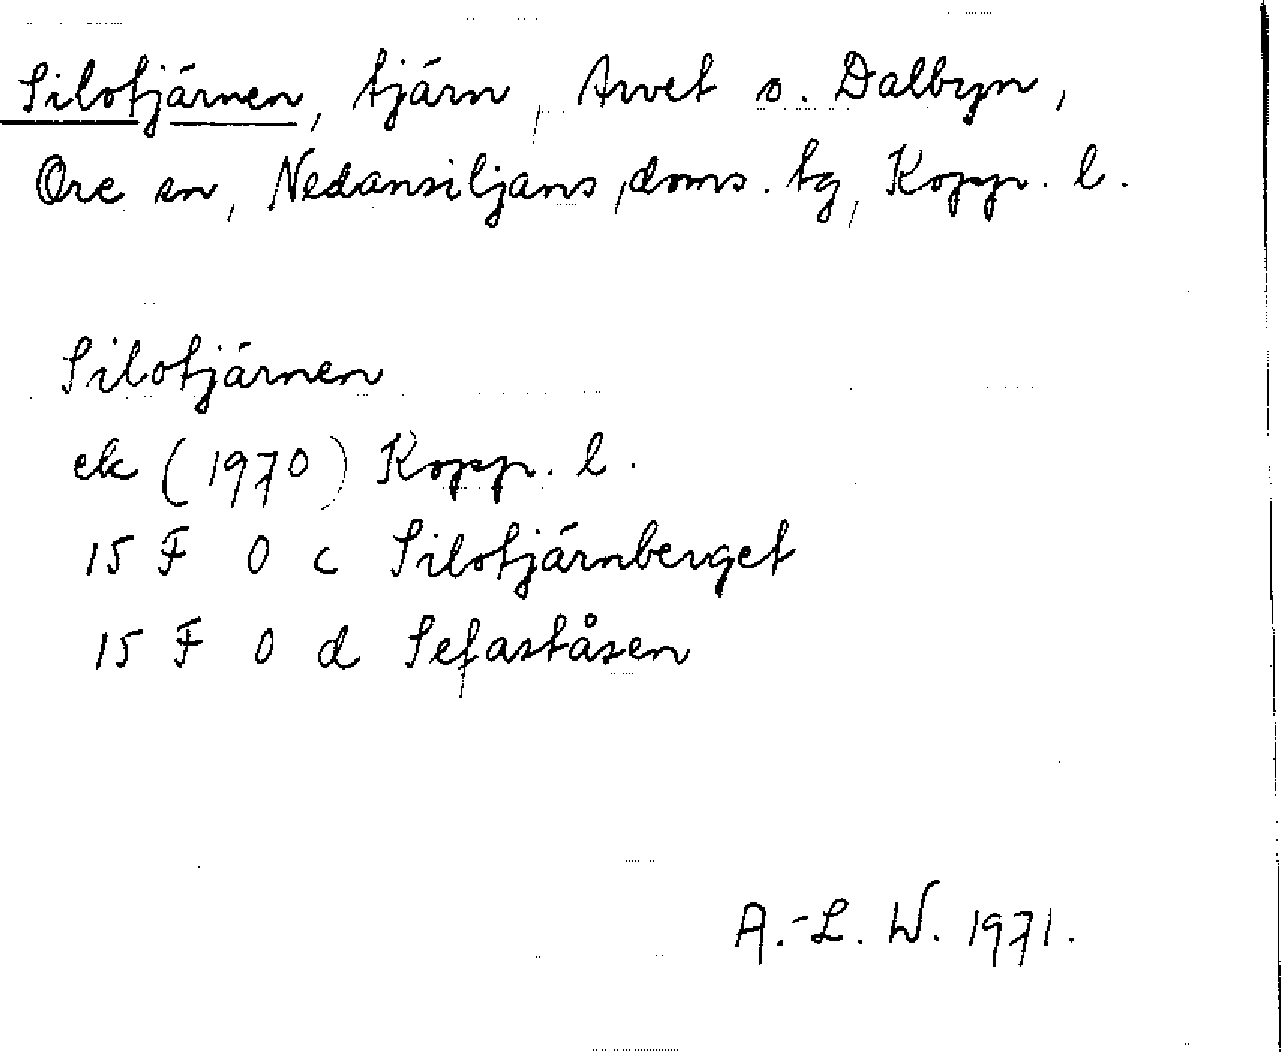 Silotjärnen, tjärn, Arvet o. Dalbyn,
Ore sn, Nedansiljans doms. tg, Kopp. l.
Silotjärnen
ek (1970) Kopp. l.
15 F 0 c Silotjärnberget
15 F 0 d Sefaståsen
A.-L. W. 1971.